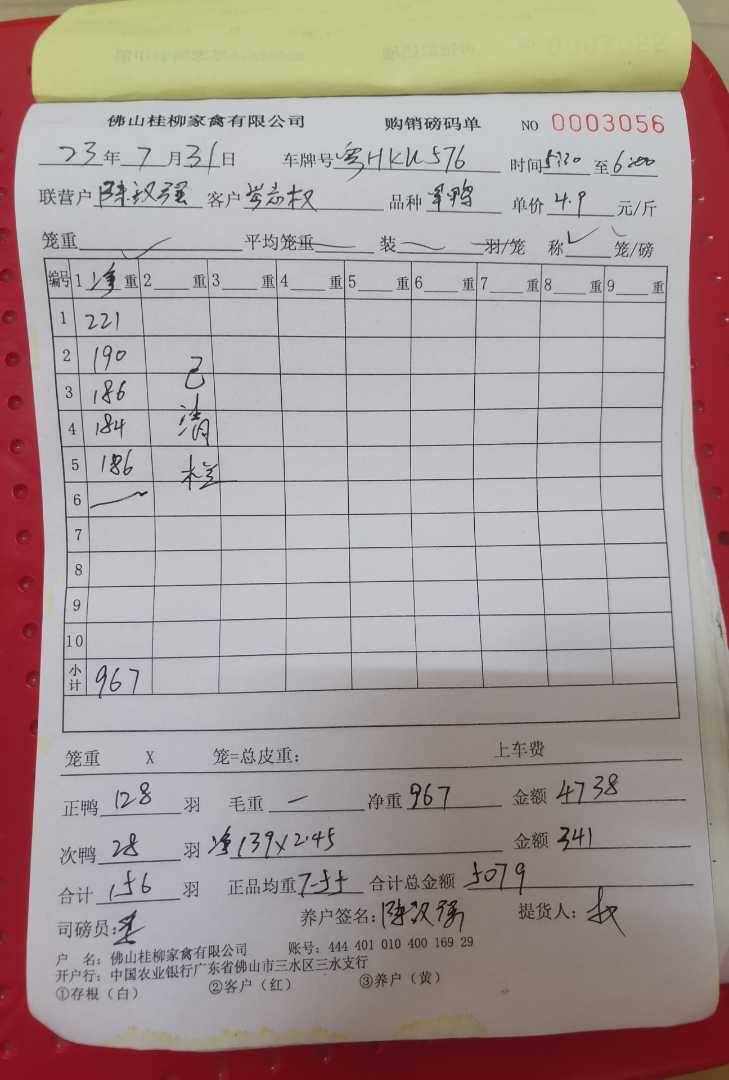 佛山桂柳家禽有限公司 购销磅码单 NO 0003056
23年7月31日 车牌号粤HKU576 时间5:30至6:00
联营户陈汉强 客户 品种 单价4.9元/斤
笼重 平均笼重 装 羽/笼 称 笼/磅
编号 1净重 2重 3重 4重 5重 6重 7重 8重 9重
1 221
2 190 已
3 186
4 184 清
5 186 栏
6
7
8
9
10
小计 967
笼重 X 笼=总皮重: 上车费
正鸭128羽 毛重一 净重967 金额4738
次鸭28羽 净139x2.45 金额341
合计156羽 正品均重7.55 合计总金额5079
司磅员: 养户签名:陈汉强 提货人:
户 名:佛山桂柳家禽有限公司 账号:444 401 010 400 169 29
开户行:中国农业银行广东省佛山市三水区三水支行
①存根(白) ②客户(红) ③养户(黄)